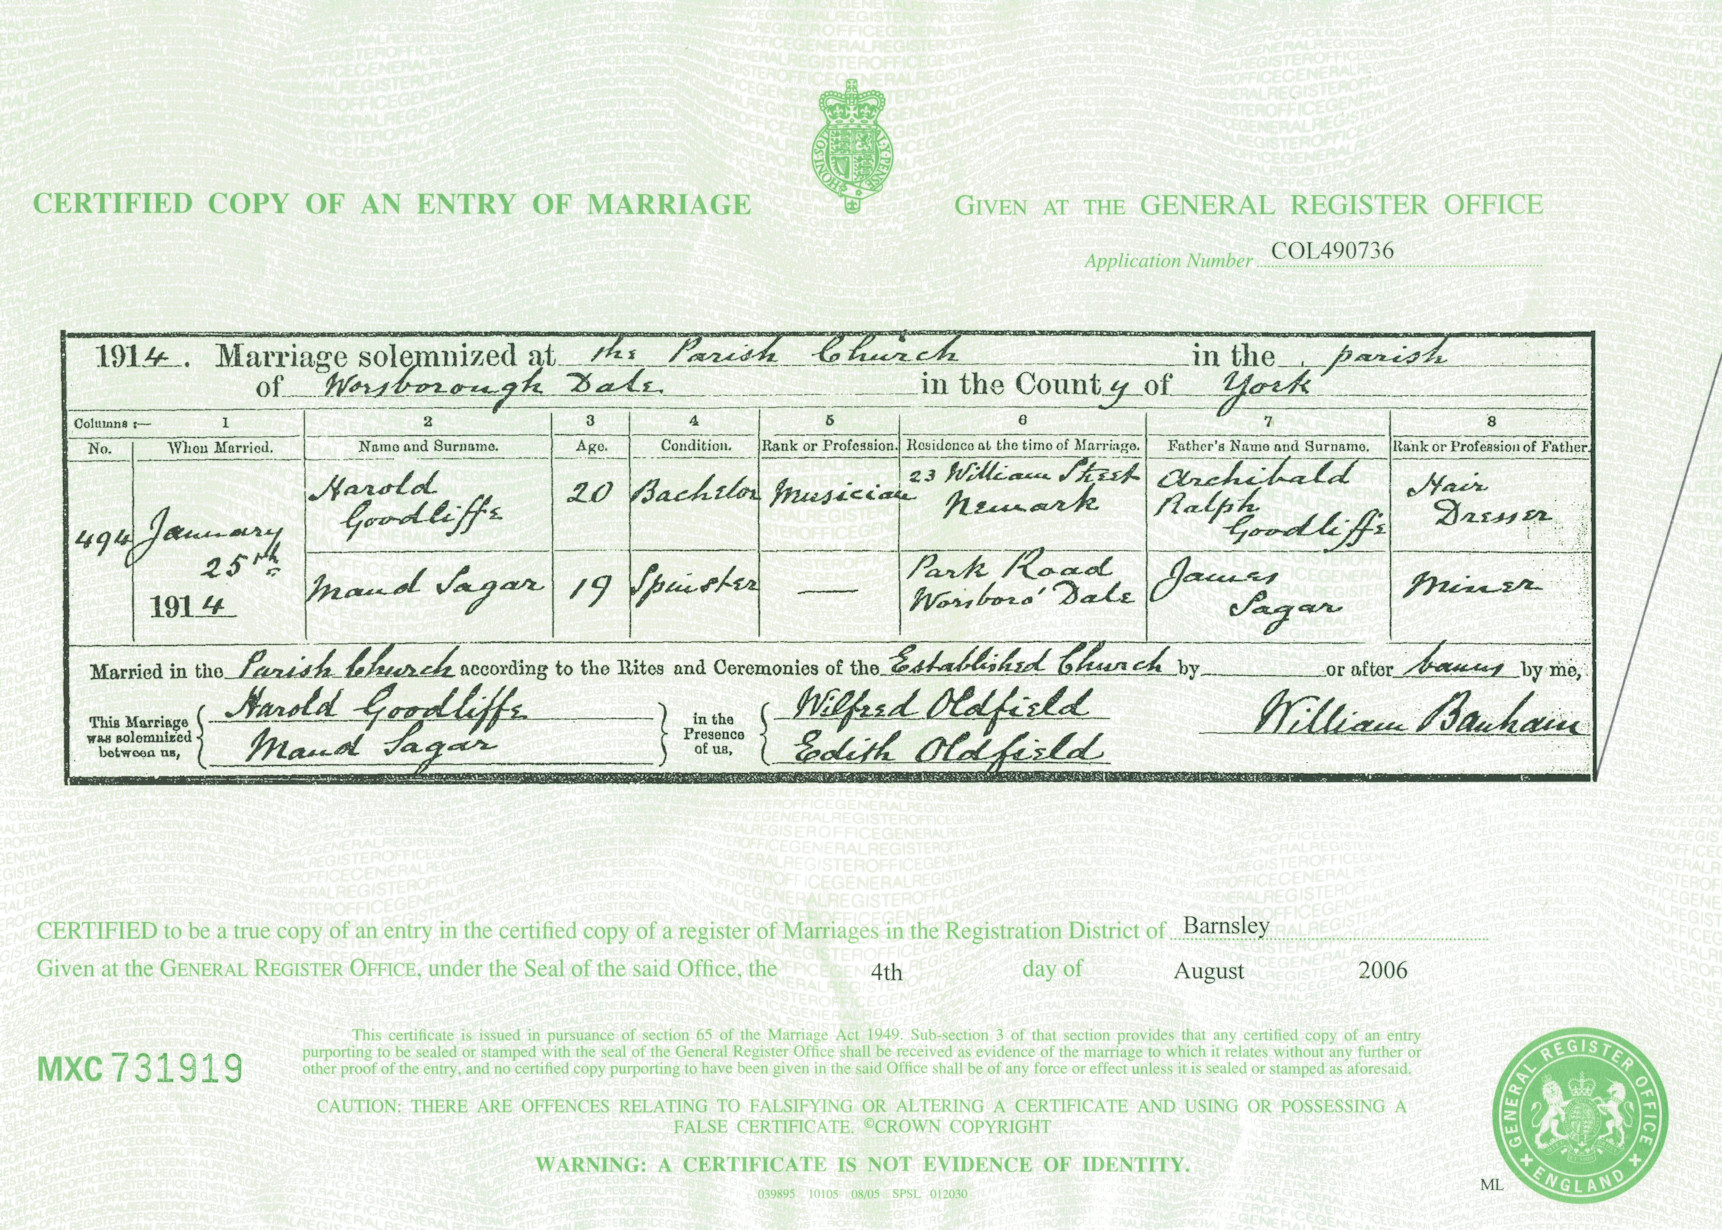 CERTIFIED COPY OF AN ENTRY OF MARRIAGE
GIVEN AT THE GENERAL REGISTER OFFICE
Application Number COL490736
1914. Marriage solemnized at the Parish Church in the parish
of Worsborough Dale in the County of York
Columns :— 1 2 3 4 5 6 7 8
No. When Married. Name and Surname. Age. Condition. Rank or Profession. Residence at the time of Marriage. Father's Name and Surname. Rank or Profession of Father.
494 January 25th 1914
Harold Goodliffe 20 Bachelor Musician 23 William Street Newark Archibald Ralph Goodliffe Hair Dresser
Maud Sagar 19 Spinster — Park Road Worsboro' Dale James Sagar Miner
Married in the Parish Church according to the Rites and Ceremonies of the Established Church by or after banns by me,
This Marriage was solemnized between us, Harold Goodliffe Maud Sagar in the Presence of us, Wilfred Oldfield Edith Oldfield William Banham
CERTIFIED to be a true copy of an entry in the certified copy of a register of Marriages in the Registration District of Barnsley
Given at the GENERAL REGISTER OFFICE, under the Seal of the said Office, the 4th day of August 2006
This certificate is issued in pursuance of section 65 of the Marriage Act 1949. Sub-section 3 of that section provides that any certified copy of an entry
purporting to be sealed or stamped with the seal of the General Register Office shall be received as evidence of the marriage to which it relates without any further or
other proof of the entry, and no certified copy purporting to have been given in the said Office shall be of any force or effect unless it is sealed or stamped as aforesaid.
MXC 731919
CAUTION: THERE ARE OFFENCES RELATING TO FALSIFYING OR ALTERING A CERTIFICATE AND USING OR POSSESSING A
FALSE CERTIFICATE. ©CROWN COPYRIGHT
WARNING: A CERTIFICATE IS NOT EVIDENCE OF IDENTITY.
039895 10105 08/05 SPSL 012030
ML
GENERAL REGISTER OFFICE
ENGLAND